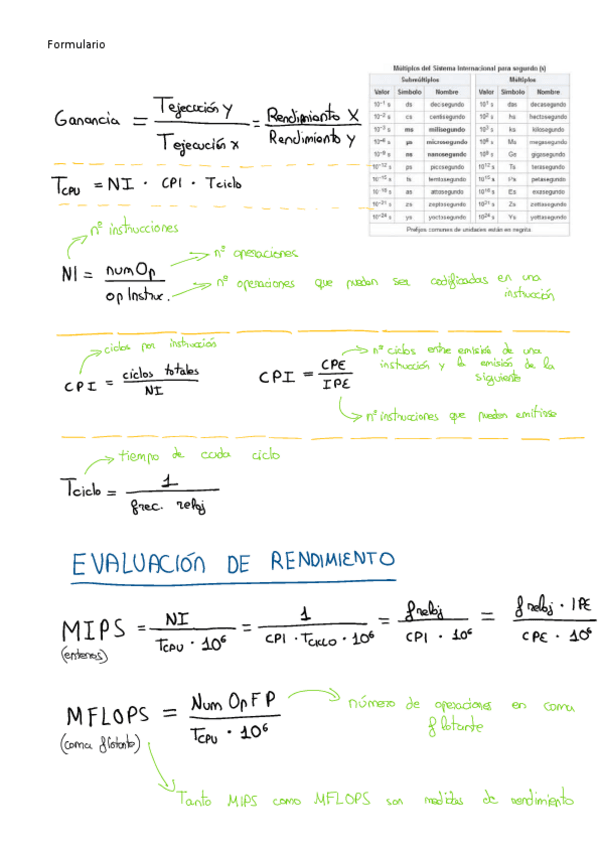 Formulario
Múltiplos del Sistema Internacional para segundo (s)
Submúltiplos Múltiplos
Valor Símbolo Nombre Valor Símbolo Nombre
10⁻¹ s ds decisegundo 10¹ s das decasegundo
10⁻² s cs centisegundo 10² s hs hectosegundo
10⁻³ s ms milisegundo 10³ s ks kilosegundo
10⁻⁶ s µs microsegundo 10⁶ s Ms megasegundo
10⁻⁹ s ns nanosegundo 10⁹ s Gs gigasegundo
10⁻¹² s ps picosegundo 10¹² s Ts terasegundo
10⁻¹⁵ s fs femtosegundo 10¹⁵ s Ps petasegundo
10⁻¹⁸ s as attosegundo 10¹⁸ s Es exasegundo
10⁻²¹ s zs zeptosegundo 10²¹ s Zs zettasegundo
10⁻²⁴ s ys yoctosegundo 10²⁴ s Ys yottasegundo
Prefijos comunes de unidades están en negrita.
Ganancia = Tejecución Y / Tejecución X = Rendimiento X / Rendimiento Y
TCPU = NI · CPI · Tciclo
nº instrucciones
NI = numOp / op Instruc.
nº operaciones
nº operaciones que puedan ser codificadas en una
instrucción
ciclos por instrucción
CPI = ciclos totales / NI
CPI = CPE / IPE
nº ciclos entre emisión de una
instrucción y la emisión de la
siguiente
nº instrucciones que pueden emitirse
tiempo de cada ciclo
Tciclo = 1 / frec. reloj
EVALUACIÓN DE RENDIMIENTO
MIPS = NI / TCPU · 10⁶ = 1 / CPI · TCICLO · 10⁶ = freloj / CPI · 10⁶ = freloj · IPE / CPE · 10⁶
(enteros)
MFLOPS = Num Op FP / TCPU · 10⁶
(coma flotante)
número de operaciones en coma
flotante
Tanto MIPS como MFLOPS son medidas de rendimiento